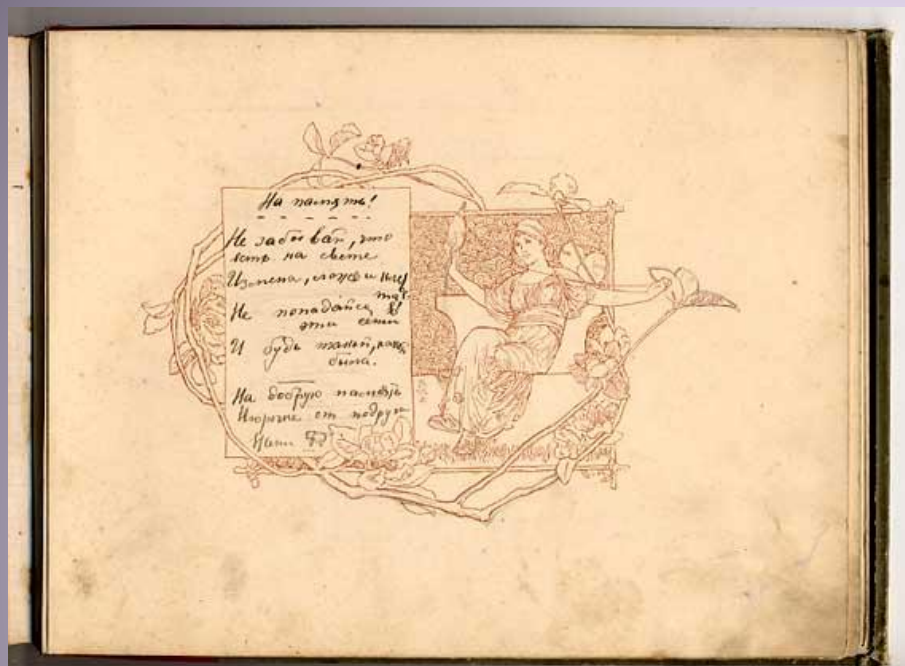 На память!
Не забывай, что
есть на свете
Измена, ложь и клеве
та.
Не попадайся в
эти сети
И будь такой, какой
была.
На добрую память
от подруги